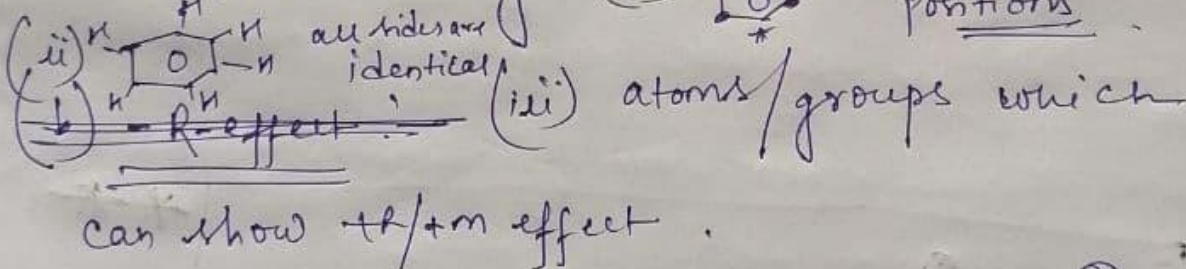 positions.
(ii) H H H H H H all sides are
identical
(b) -R-effect : (iii) atoms/groups which
can show +R/+m effect.